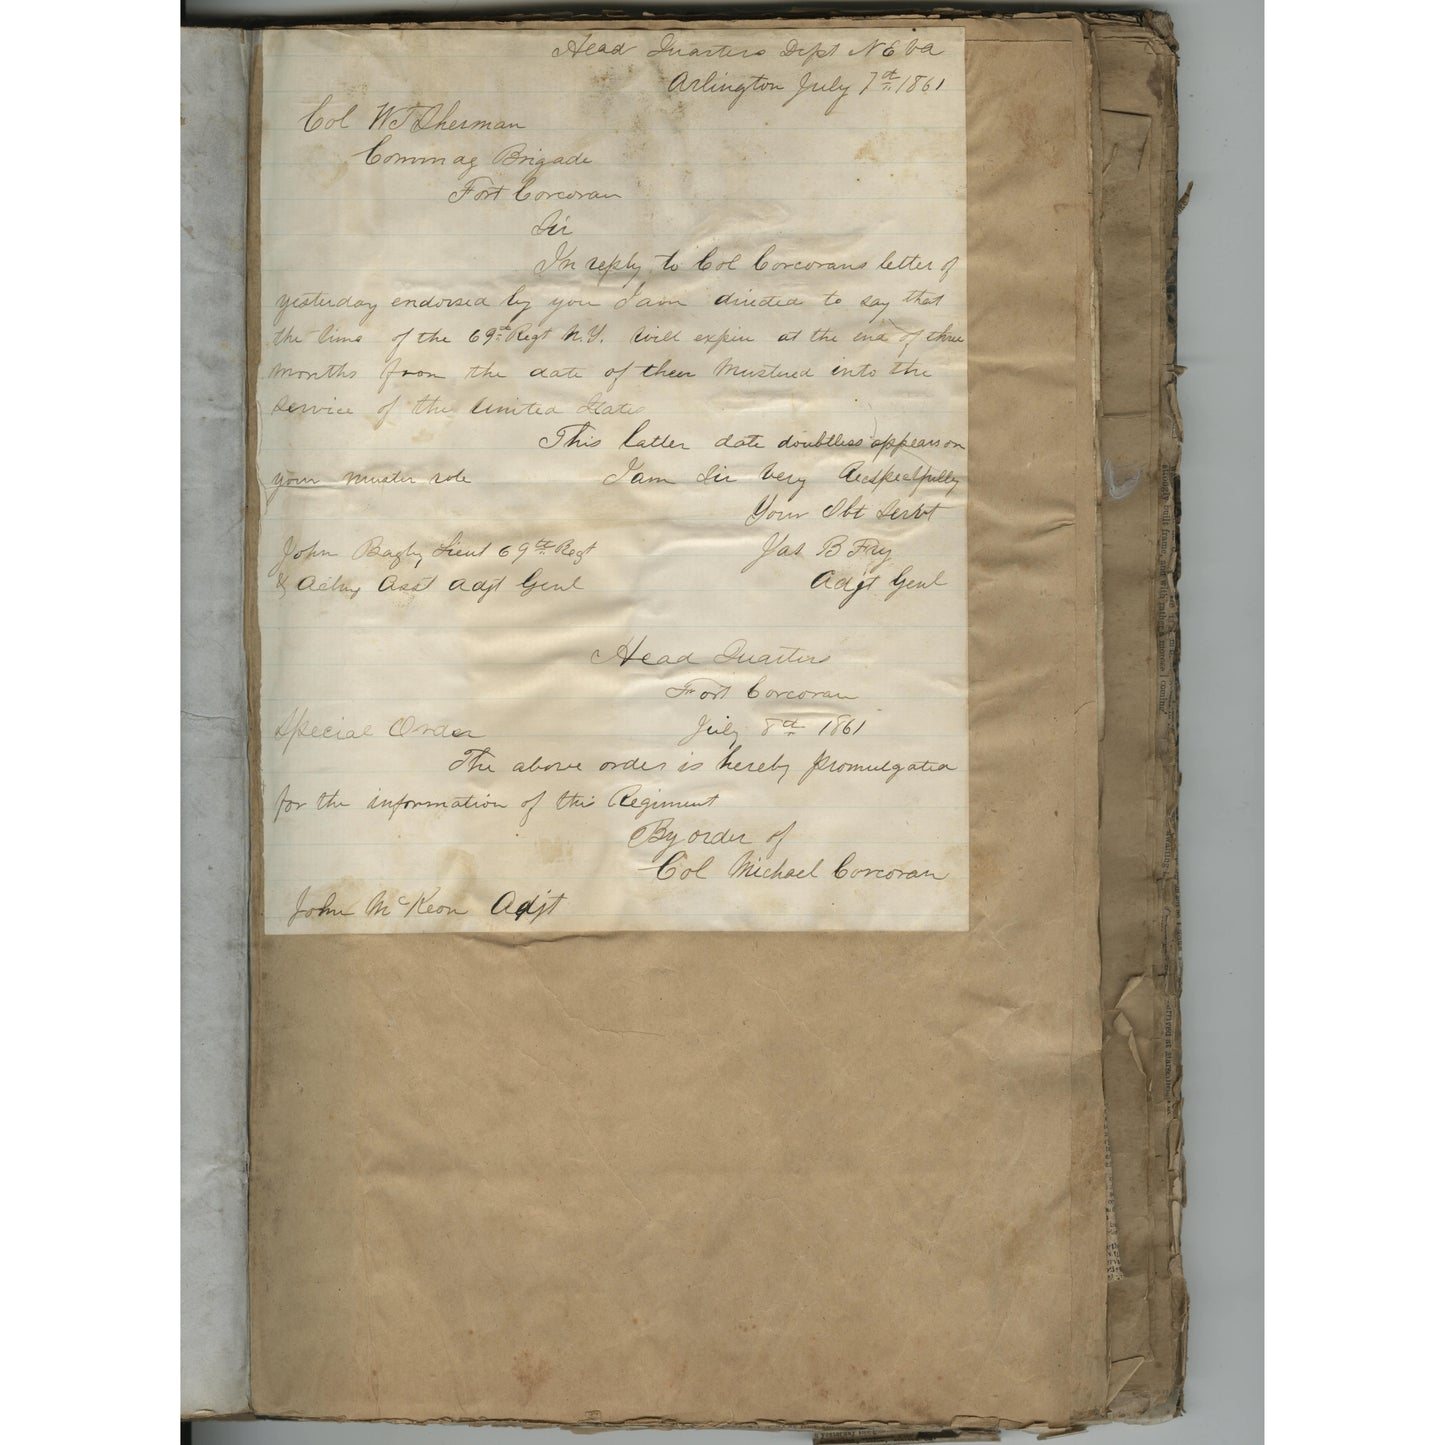 Head Quarters Dept N E Va
Arlington July 7th 1861
Col W T Sherman
Commdg Brigade
Fort Corcoran
Sir
In reply to Col Corcorans letter of
yesterday endorsed by you I am directed to say that
the time of the 69th Regt N.Y. will expire at the end of three
months from the date of their Mustered into the
service of the United States
This latter date doubtless appears on
your muster role I am Sir Very Respectfully
Your Obt Servt
John Bagly Lieut 69th Regt Jas B Fry
& Acting Asst Adjt Genl Adjt Genl
Head Quarters
Fort Corcoran
Special Order July 8th 1861
The above order is hereby promulgated
for the information of this Regiment
By order of
Col Michael Corcoran
John McKeon Adjt